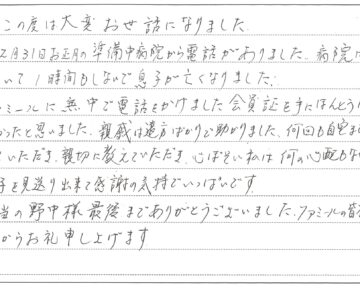 この度は大変お世話になりました。
12月31日お正月の準備中病院から電話がありました。病院に
いて1時間もしないで息子が亡くなりました。
ァミールに無中で電話をかけました会員証を手にほんとう
かったと思いました。親戚は遠方ばかりで助かりました。何回も自宅ま
ていただき、親切に教えていただき、心ぼそい私は何の心配もな
子を見送り出来て感謝の気持でいっぱいです。
当の野中様最後までありがとうございました。ファミールの皆
からお礼申し上げます